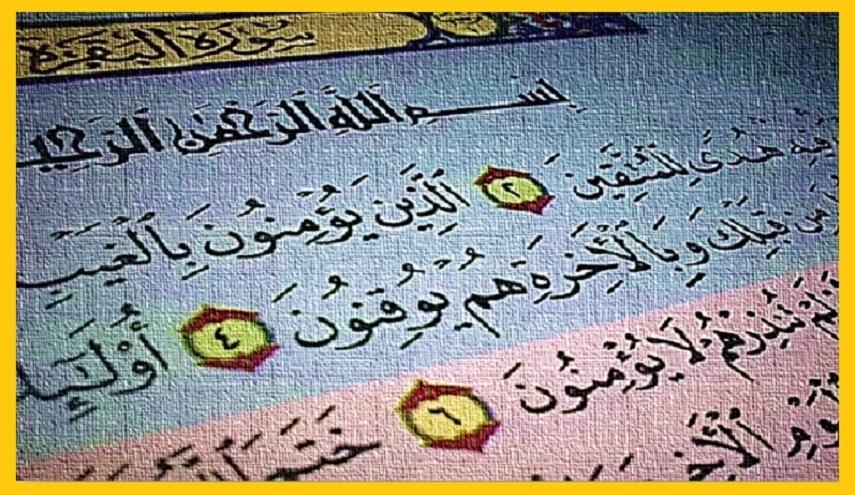 سُورَةُ البَقَرَةِ
بِسْمِ اللَّهِ الرَّحْمَٰنِ الرَّحِي
فِيهِ هُدًى لِّلْمُتَّقِينَ ٢ الَّذِينَ يُؤْمِنُونَ بِالْغَيْبِ
مِن قَبْلِكَ وَبِالْآخِرَةِ هُمْ يُوقِنُونَ ٤ أُوْلَٰٓئِ
لَمْ تُنذِرْهُمْ لَا يُؤْمِنُونَ ٦ خَتَمَ اللَّهُ
الْآخِ